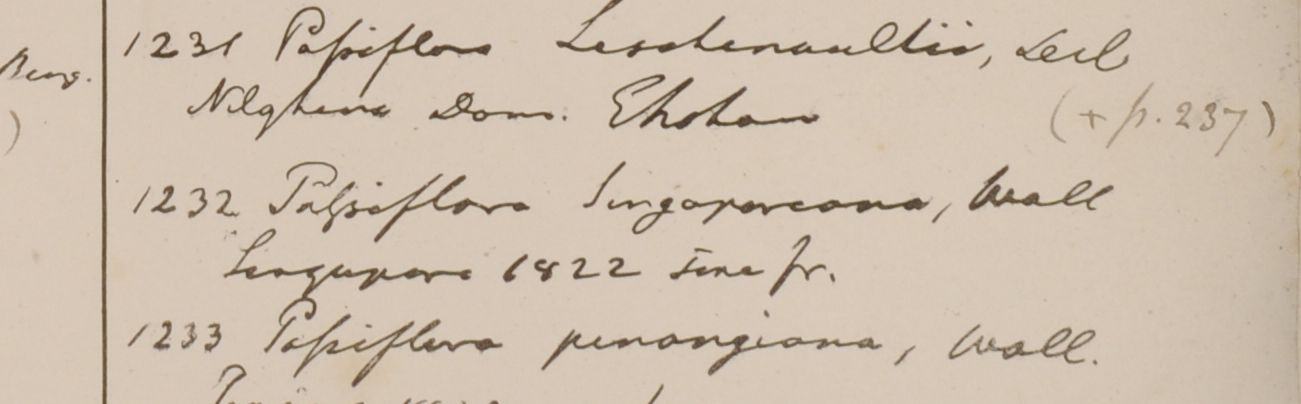 Beng.
)
1231 Passiflora Leschenaultii, Decl
Nilgherra Dom. (+ p. 237)
1232 Passiflora Singaporeana, Wall
Singapore 1822 sine fr.
1233 Passiflora penangiana, Wall.